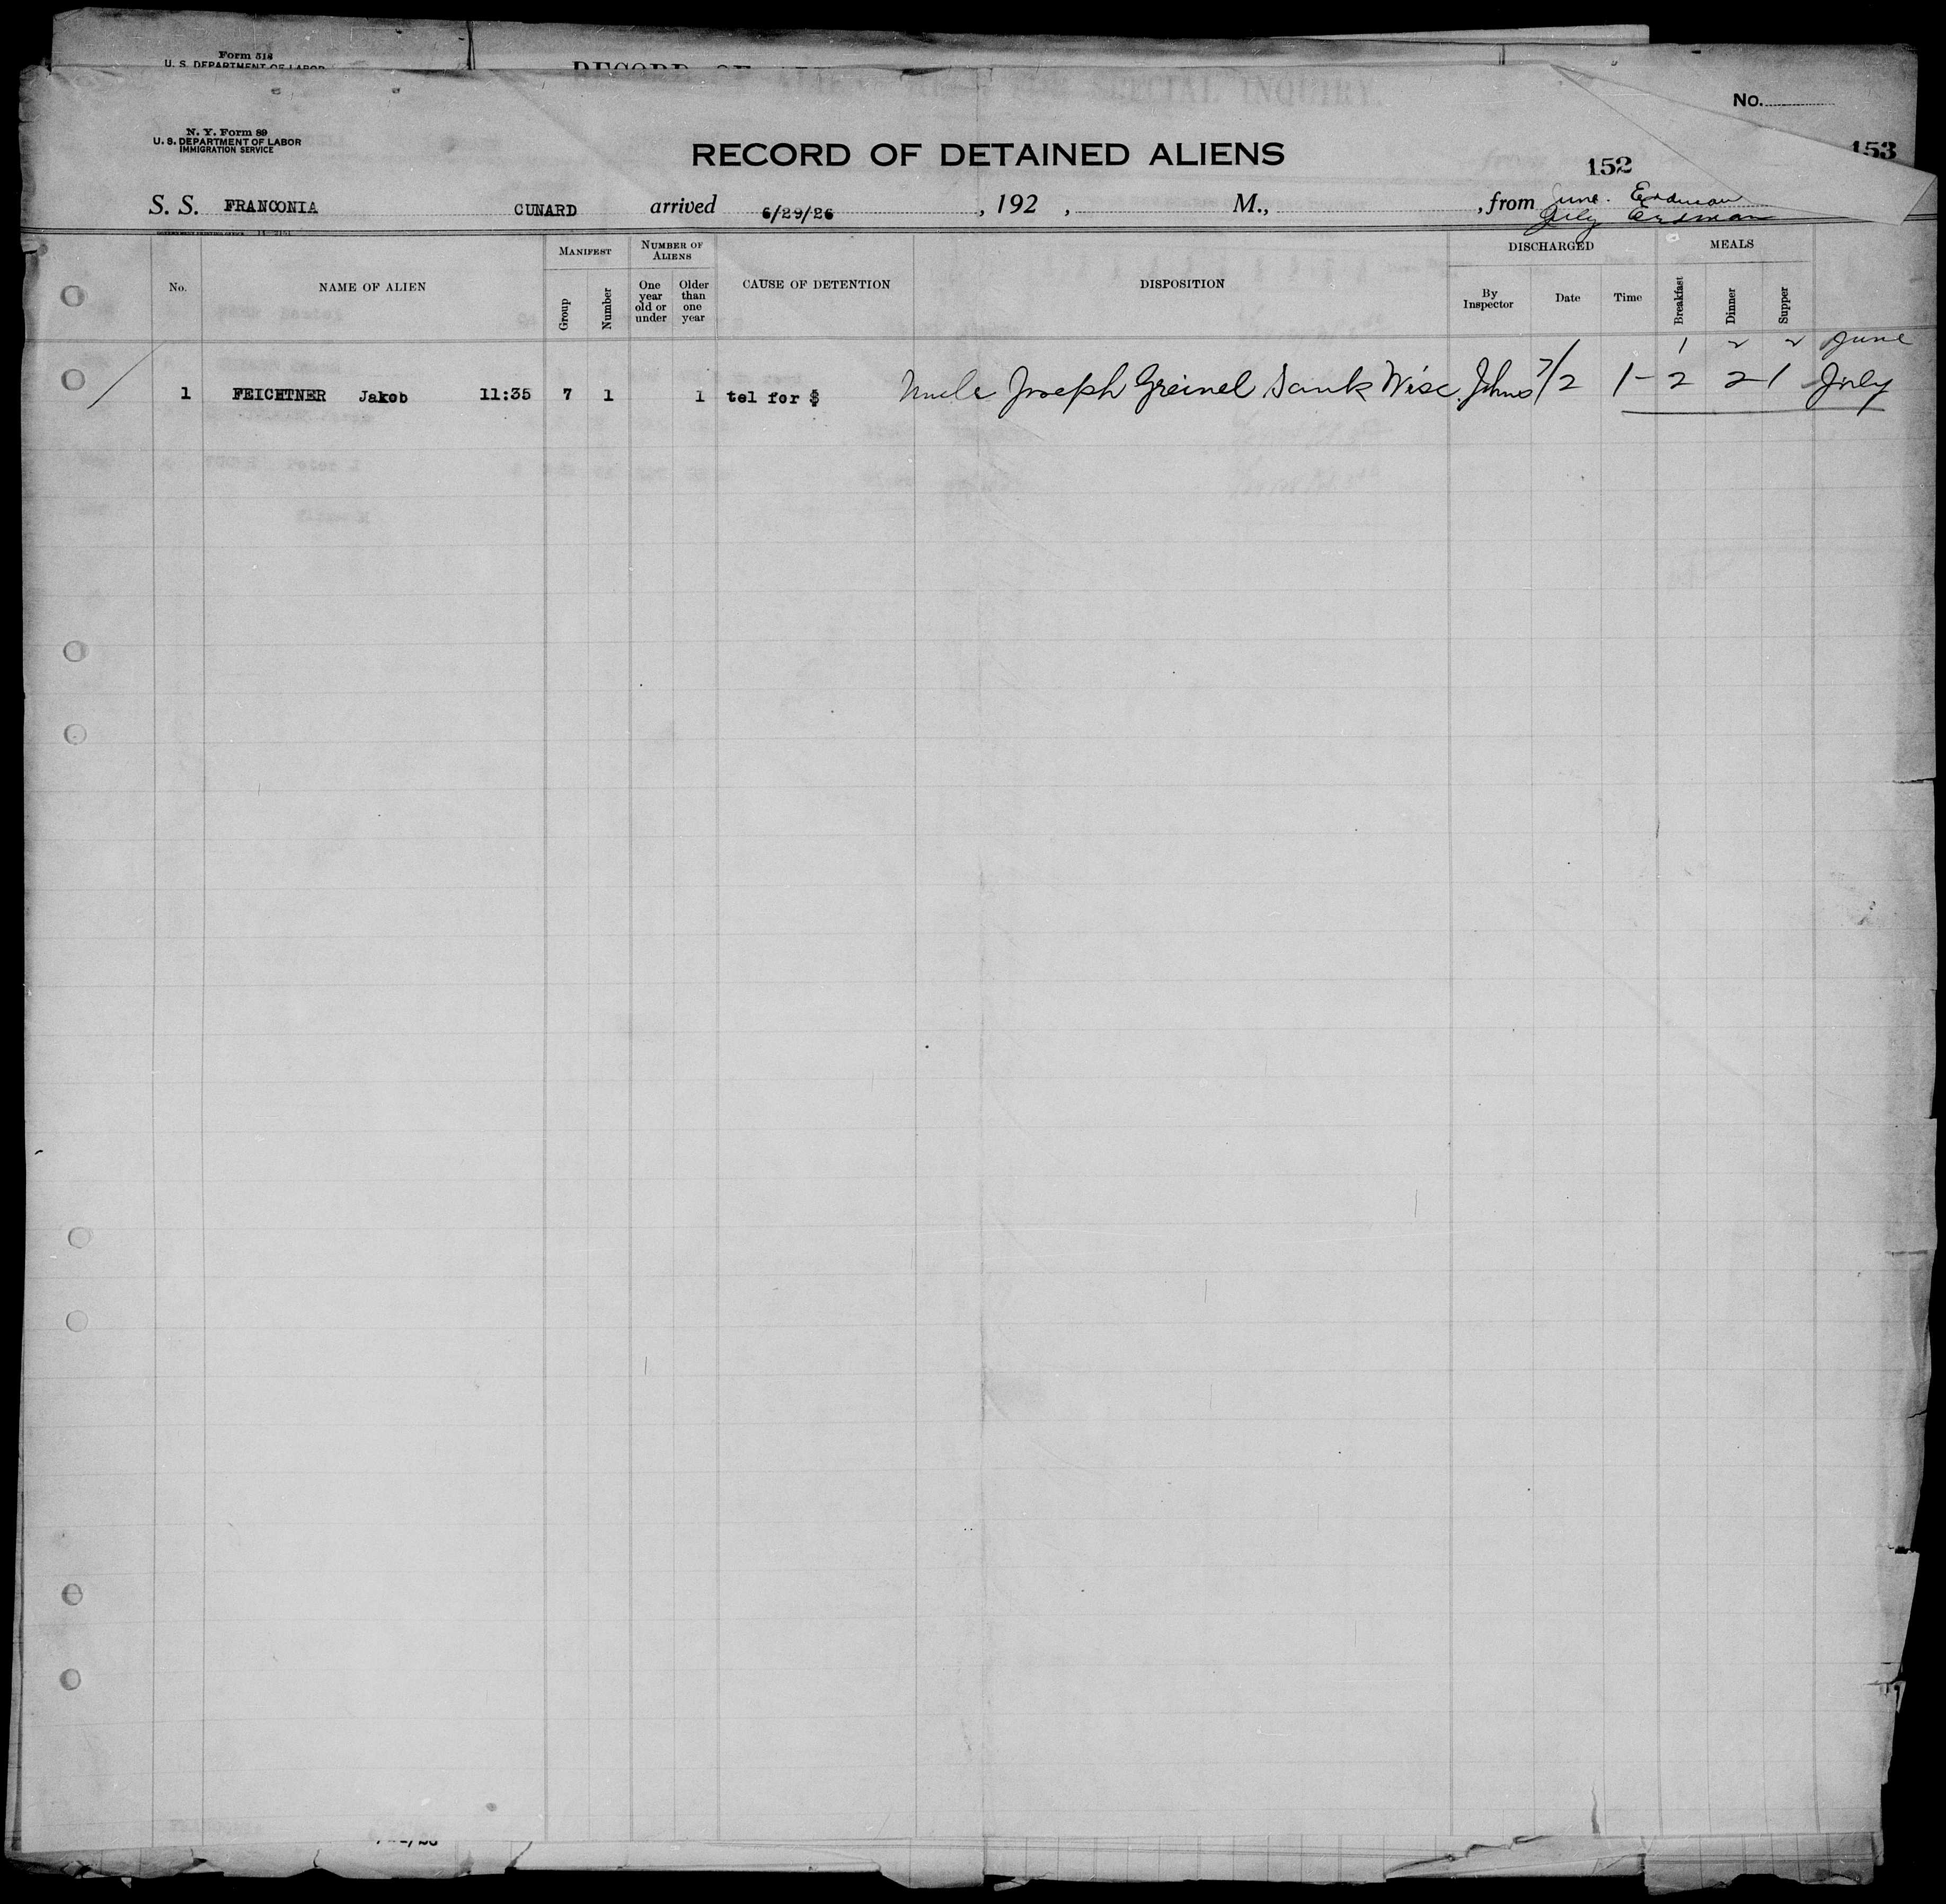 Form 518
U. S. DEPARTMENT OF LABOR
RECORD OF
SPECIAL INQUIRY.
No.
N. Y. Form 89
U. S. DEPARTMENT OF LABOR
IMMIGRATION SERVICE
RECORD OF DETAINED ALIENS
152
153
S. S. FRANCONIA CUNARD arrived 6/29/26 , 192 , M., , from June. Erdman
July Erdman
MANIFEST NUMBER OF ALIENS DISCHARGED MEALS
No. NAME OF ALIEN Group Number One year old or under Older than one year CAUSE OF DETENTION DISPOSITION By Inspector Date Time Breakfast Dinner Supper
1 2 2 June
1 FEICHTNER Jakob 11:35 7 1 1 tel for $ Uncle Joseph Greinel Sauk Wisc. Johns 7/2 1- 2 2 1 July